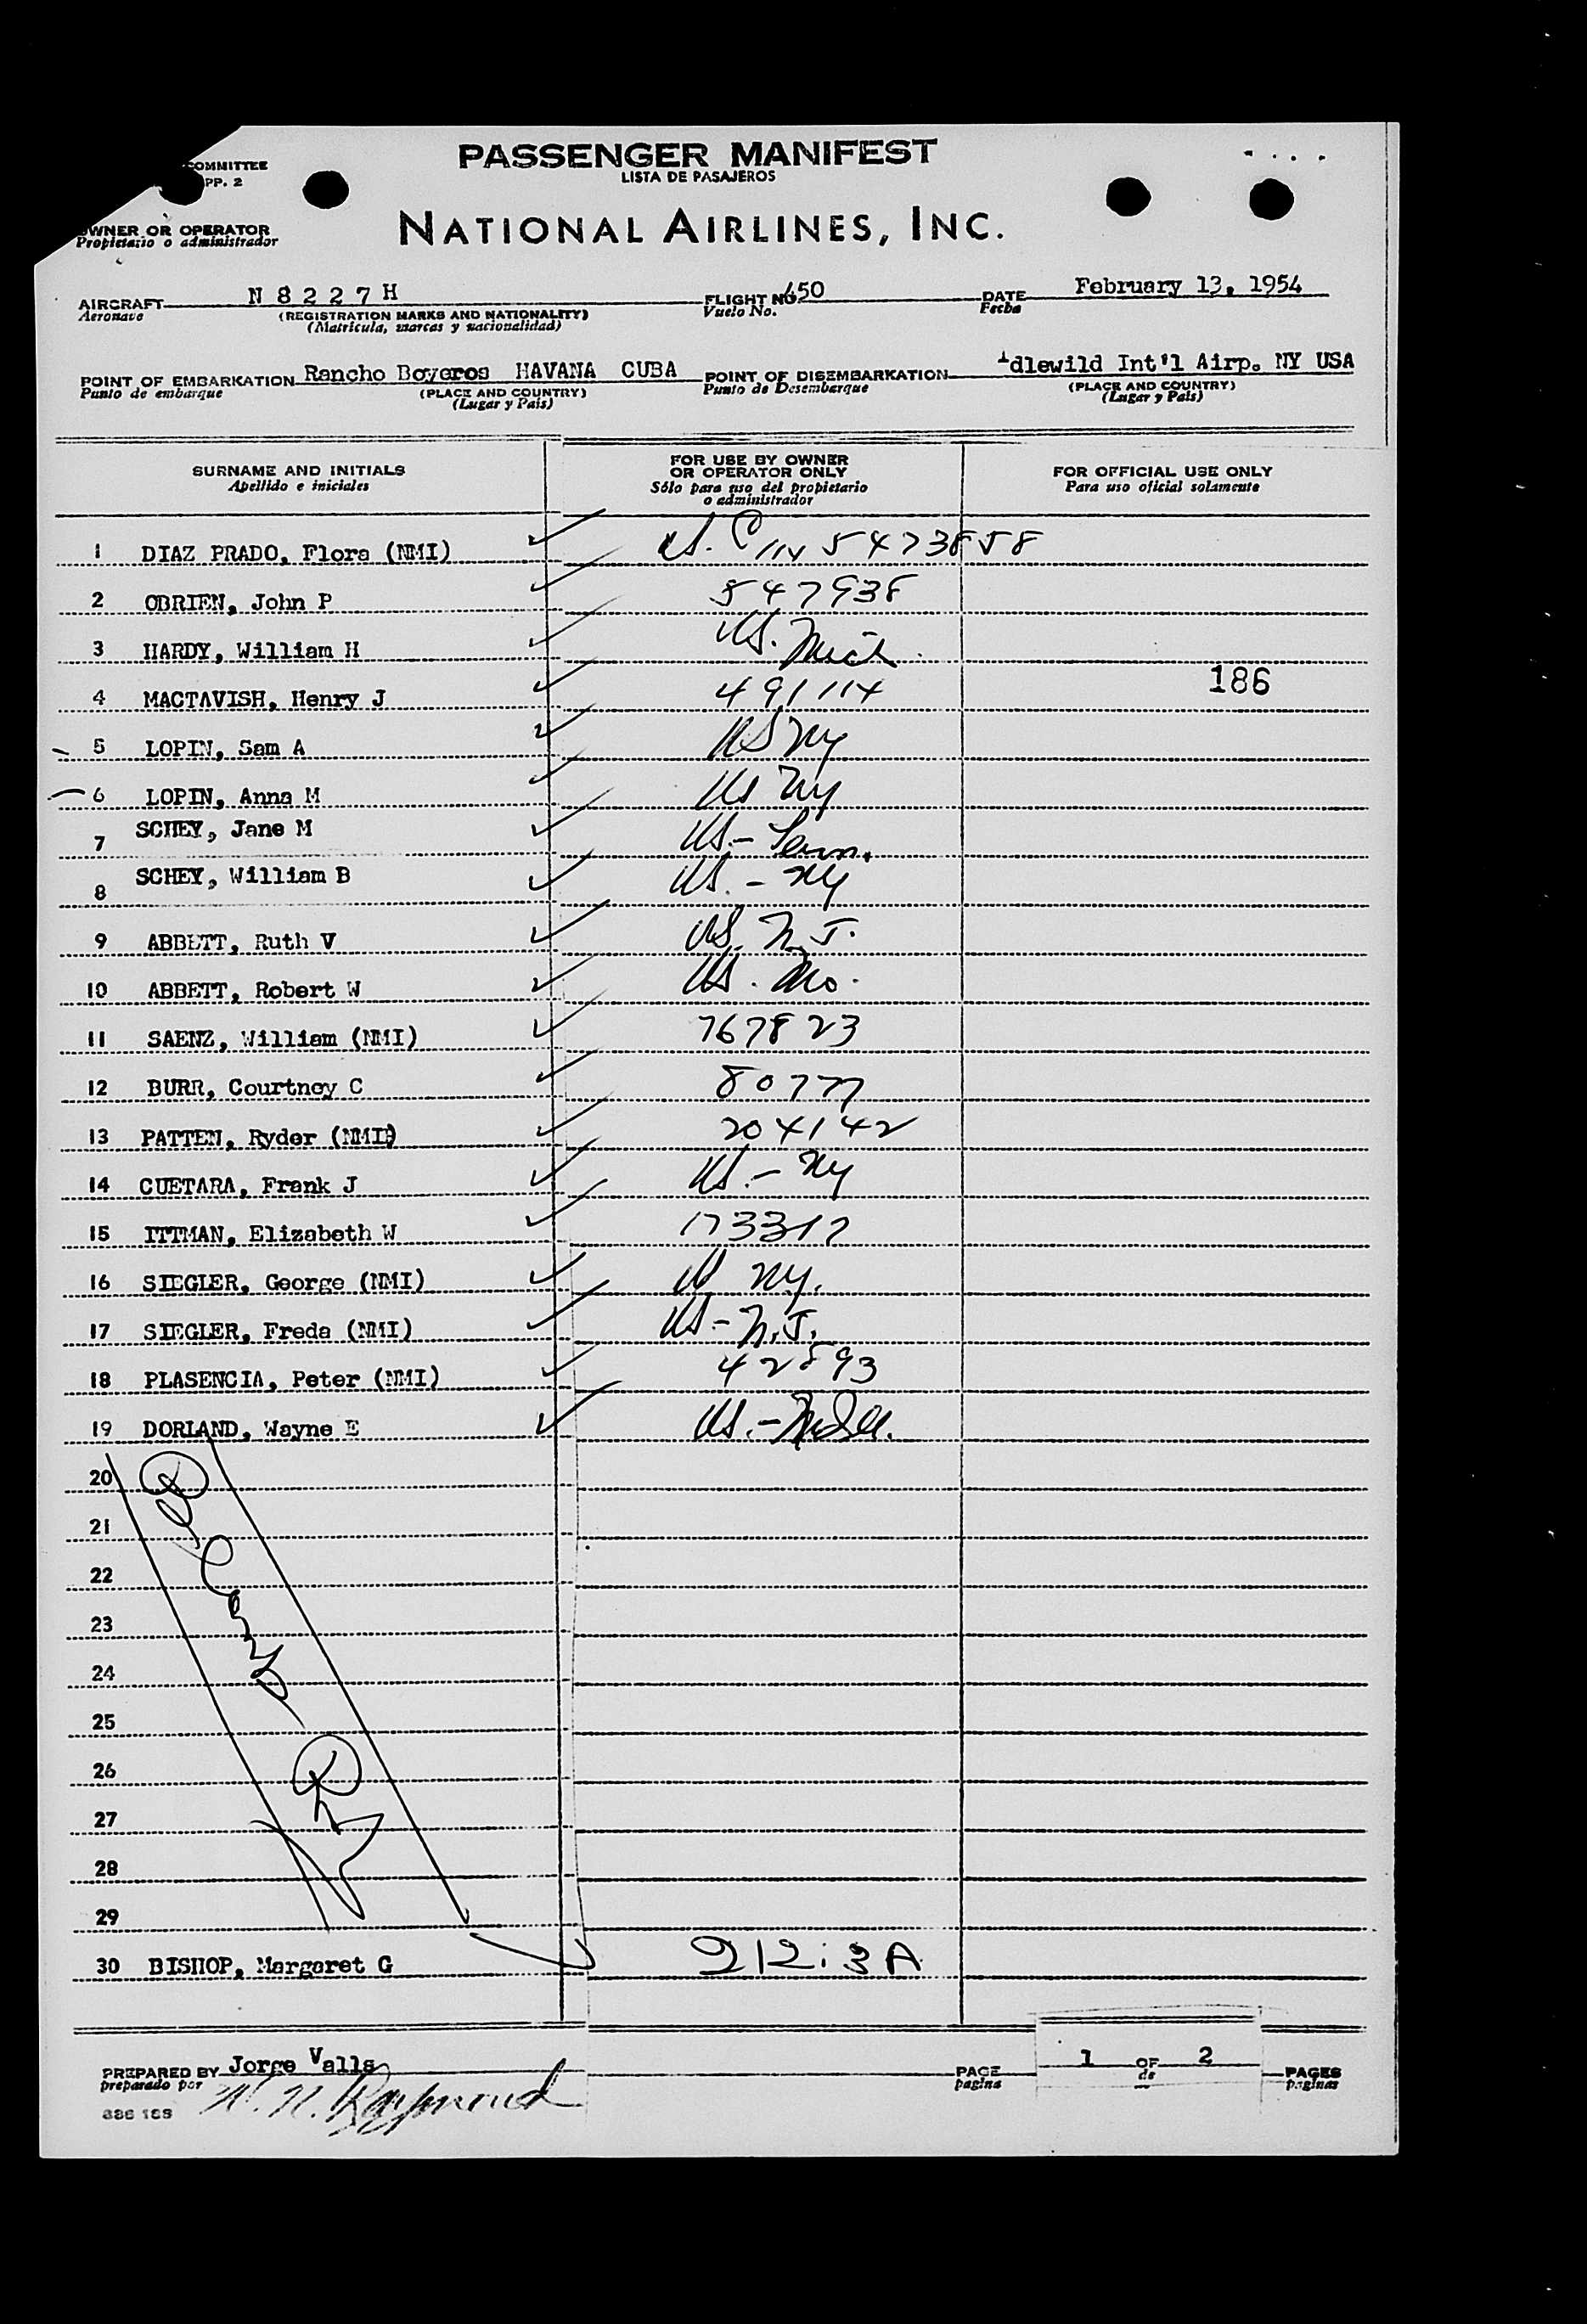 COMMITTEE
PP. 2
PASSENGER MANIFEST
LISTA DE PASAJEROS
OWNER OR OPERATOR
Propietario o administrador
NATIONAL AIRLINES, INC.
AIRCRAFT N 8 2 2 7 H FLIGHT NO. 450 DATE February 13, 1954
Aeronave (REGISTRATION MARKS AND NATIONALITY) Vuelo No. Fecha
(Matrícula, marcas y nacionalidad)
POINT OF EMBARKATION Rancho Boyeros HAVANA CUBA POINT OF DISEMBARKATION Idlewild Int'l Airp. NY USA
Punto de embarque (PLACE AND COUNTRY) Punto de Desembarque (PLACE AND COUNTRY)
(Lugar y País) (Lugar y País)
SURNAME AND INITIALS FOR USE BY OWNER OR OPERATOR ONLY FOR OFFICIAL USE ONLY
Apellido e iniciales Sólo para uso del propietario o administrador Para uso oficial solamente
1 DIAZ PRADO, Flora (NMI)
2 OBRIEN, John P 547938
3 HARDY, William H US. Mich.
4 MACTAVISH, Henry J 491114 186
5 LOPIN, Sam A US NY
6 LOPIN, Anna M US NY
7 SCHEY, Jane M US.-
8 SCHEY, William B US. - NY
9 ABBETT, Ruth V US. N.J.
10 ABBETT, Robert W US. Mo.
11 SAENZ, William (NMI) 767823
12 BURR, Courtney C 80777
13 PATTEN, Ryder (NMI) 204142
14 CUETARA, Frank J US.- NY
15 ITTMAN, Elizabeth W 173317
16 SIEGLER, George (NMI) NY.
17 SIEGLER, Freda (NMI) US- N.J.
18 PLASENCIA, Peter (NMI) 42893
19 DORLAND, Wayne E US.-
20
21
22
23
24
25
26
27
28
29
30 BISHOP, Margaret G 212:3A
PREPARED BY Jorge Valls PAGE 1 OF 2 PAGES
preparado por W. N. Raymond pagina de paginas